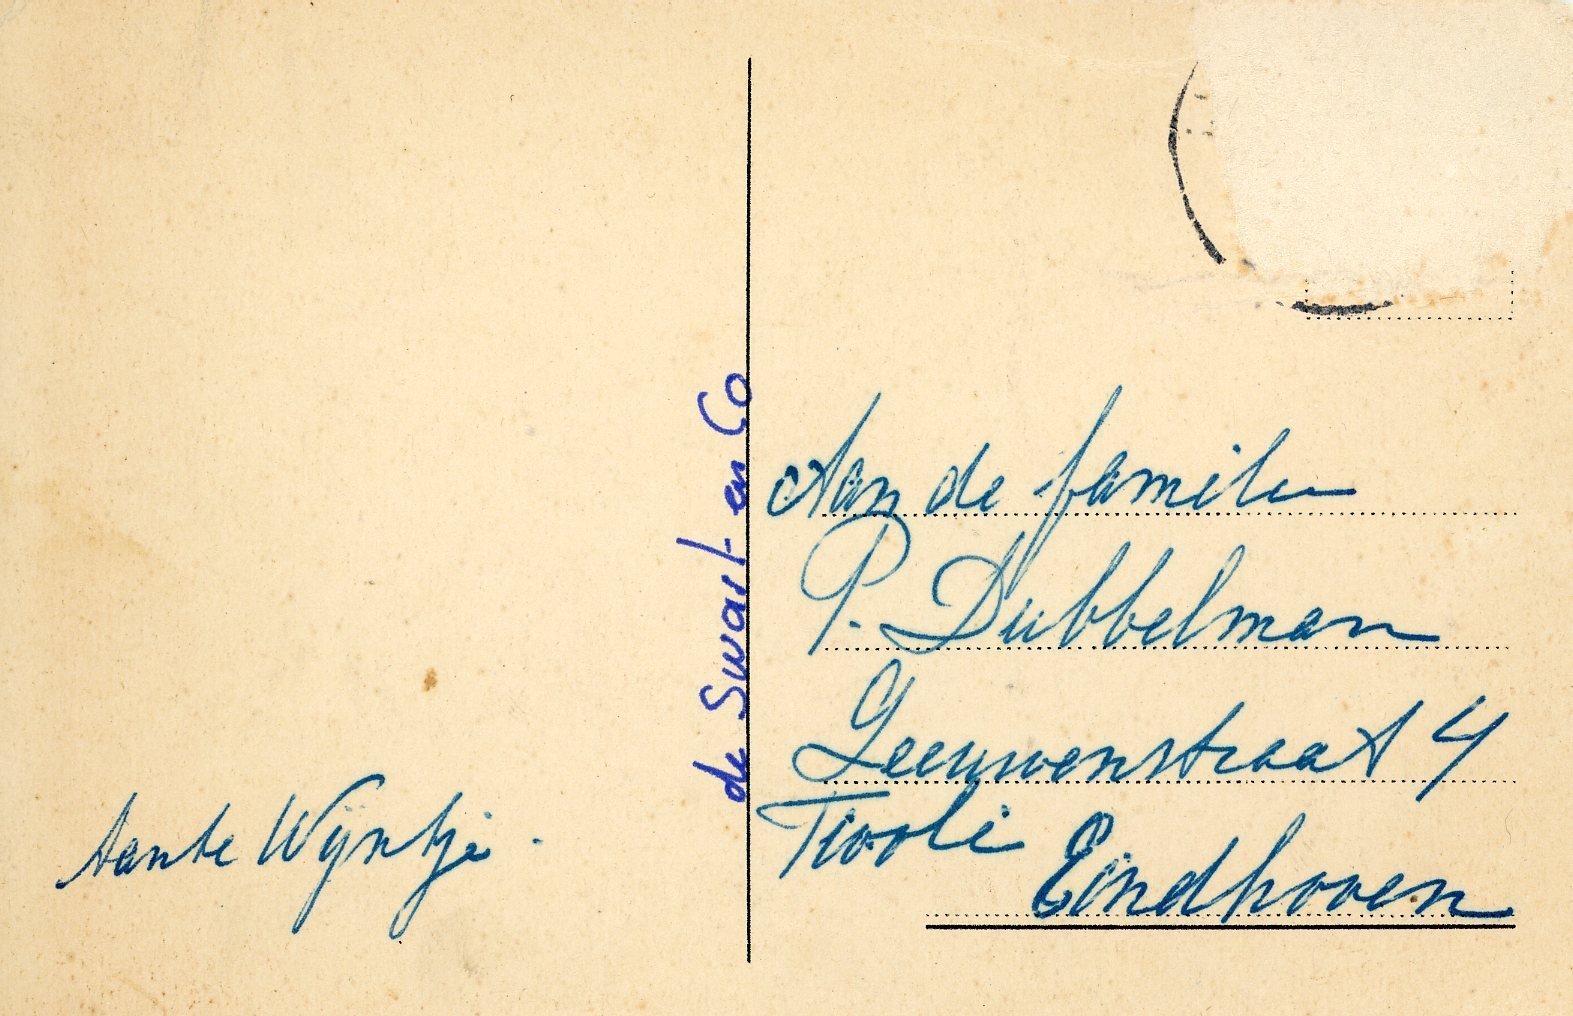 tante Wijntje.
de Swart en Co
Aan de familie
P. Dubbelman
Leeuwenstraat 4
Tivoli
Eindhoven